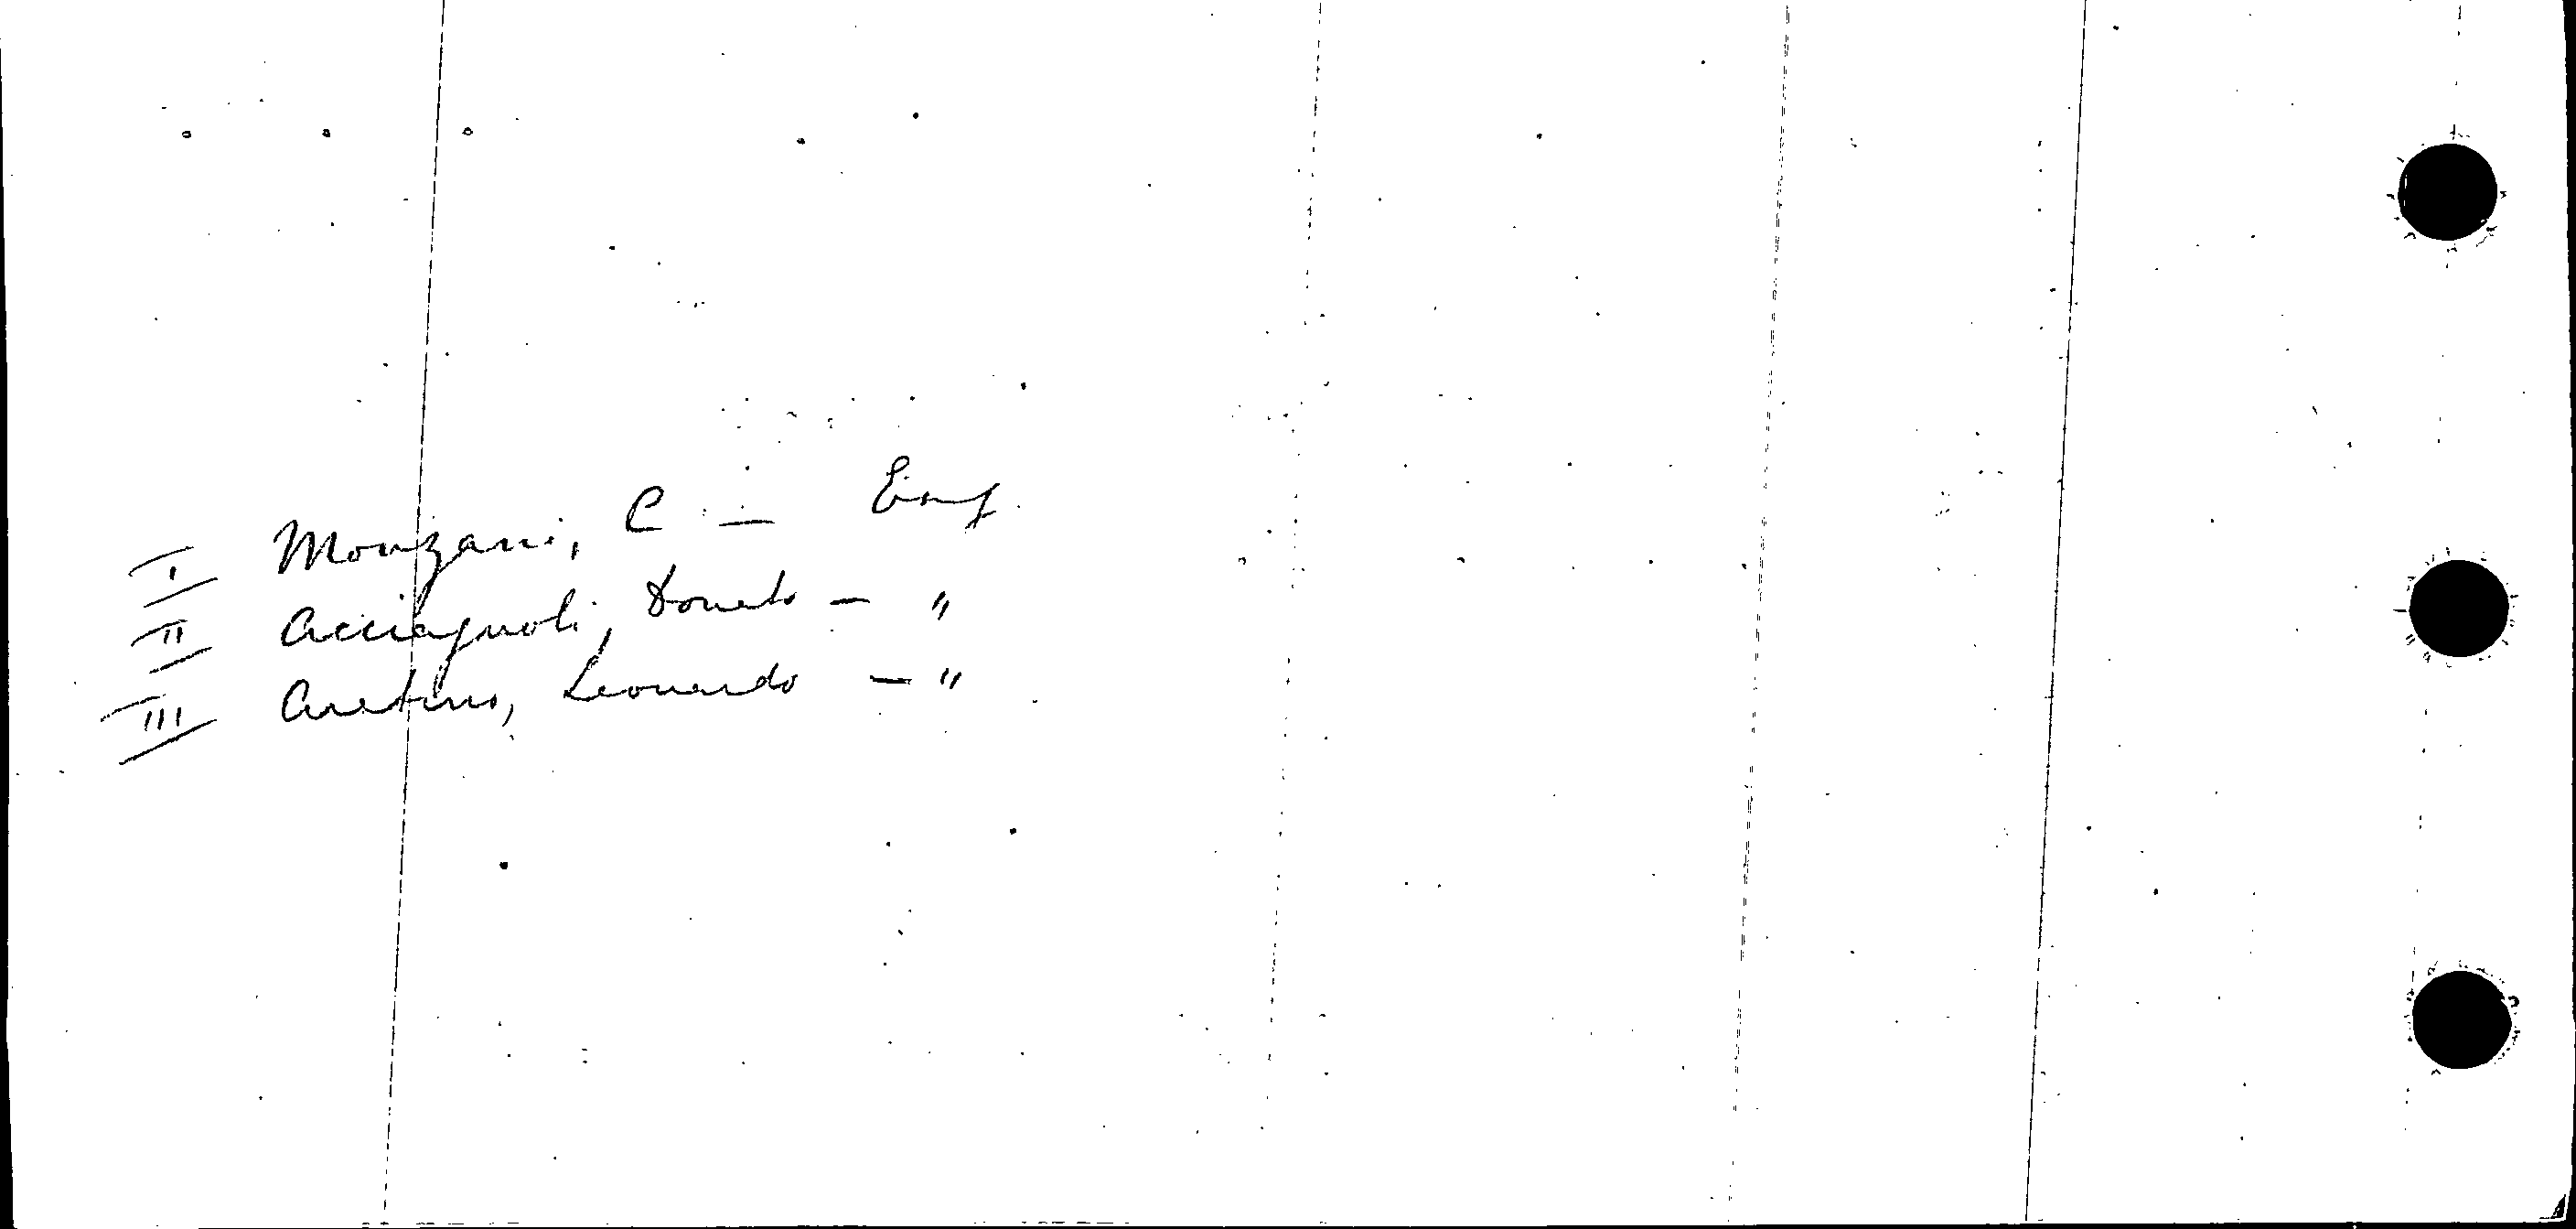 I Monzani, C — Eng.
II Acciagnoli, Donato — "
III Aretino, Leonardo — "